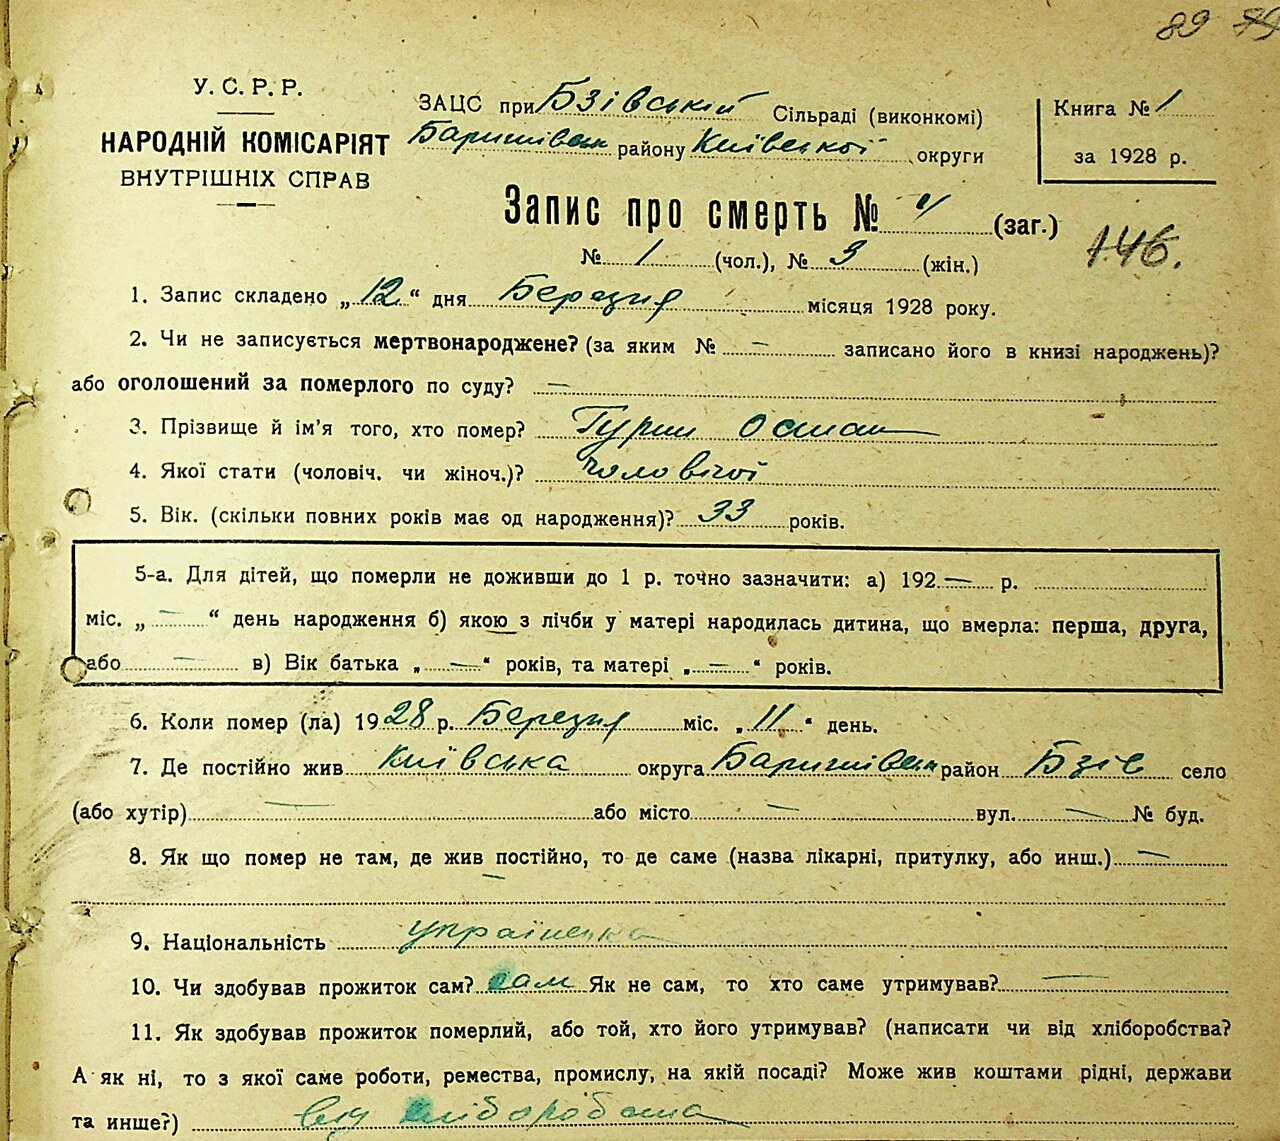 89
У. С. Р. Р.
НАРОДНІЙ КОМІСАРІЯТ
ВНУТРІШНІХ СПРАВ
ЗАЦС при Бзівській Сільраді (виконкомі)
Баришівськ району Київської округи
Книга № 1
за 1928 р.
Запис про смерть № 4 (заг.)
№ 1 (чол.), № 3 (жін.)
146.
1. Запис складено „12“ дня Березня місяця 1928 року.
2. Чи не записується мертвонароджене? (за яким № — записано його в книзі народжень)?
або оголошений за померлого по суду? —
3. Прізвище й ім'я того, хто помер? Гурин Остап
4. Якої стати (чоловіч. чи жіноч.)? чоловічої
5. Вік. (скільки повних років має од народження)? 33 років.
5-а. Для дітей, що померли не доживши до 1 р. точно зазначити: а) 192 — р.
міс. „ — “ день народження б) якою з лічби у матері народилась дитина, що вмерла: перша, друга,
або — в) Вік батька „ — “ років, та матері „ — “ років.
6. Коли помер (ла) 1928 р. Березня міс. „11“ день.
7. Де постійно жив Київська округа Баришівськ район Бзів село
(або хутір) — або місто — вул. — № буд.
8. Як що помер не там, де жив постійно, то де саме (назва лікарні, притулку, або инш.) —
9. Національність українська
10. Чи здобував прожиток сам? сам Як не сам, то хто саме утримував? —
11. Як здобував прожиток померлий, або той, хто його утримував? (написати чи від хліборобства?
А як ні, то з якої саме роботи, ремества, промислу, на якій посаді? Може жив коштами рідні, держави
та инше?) від хліборобства